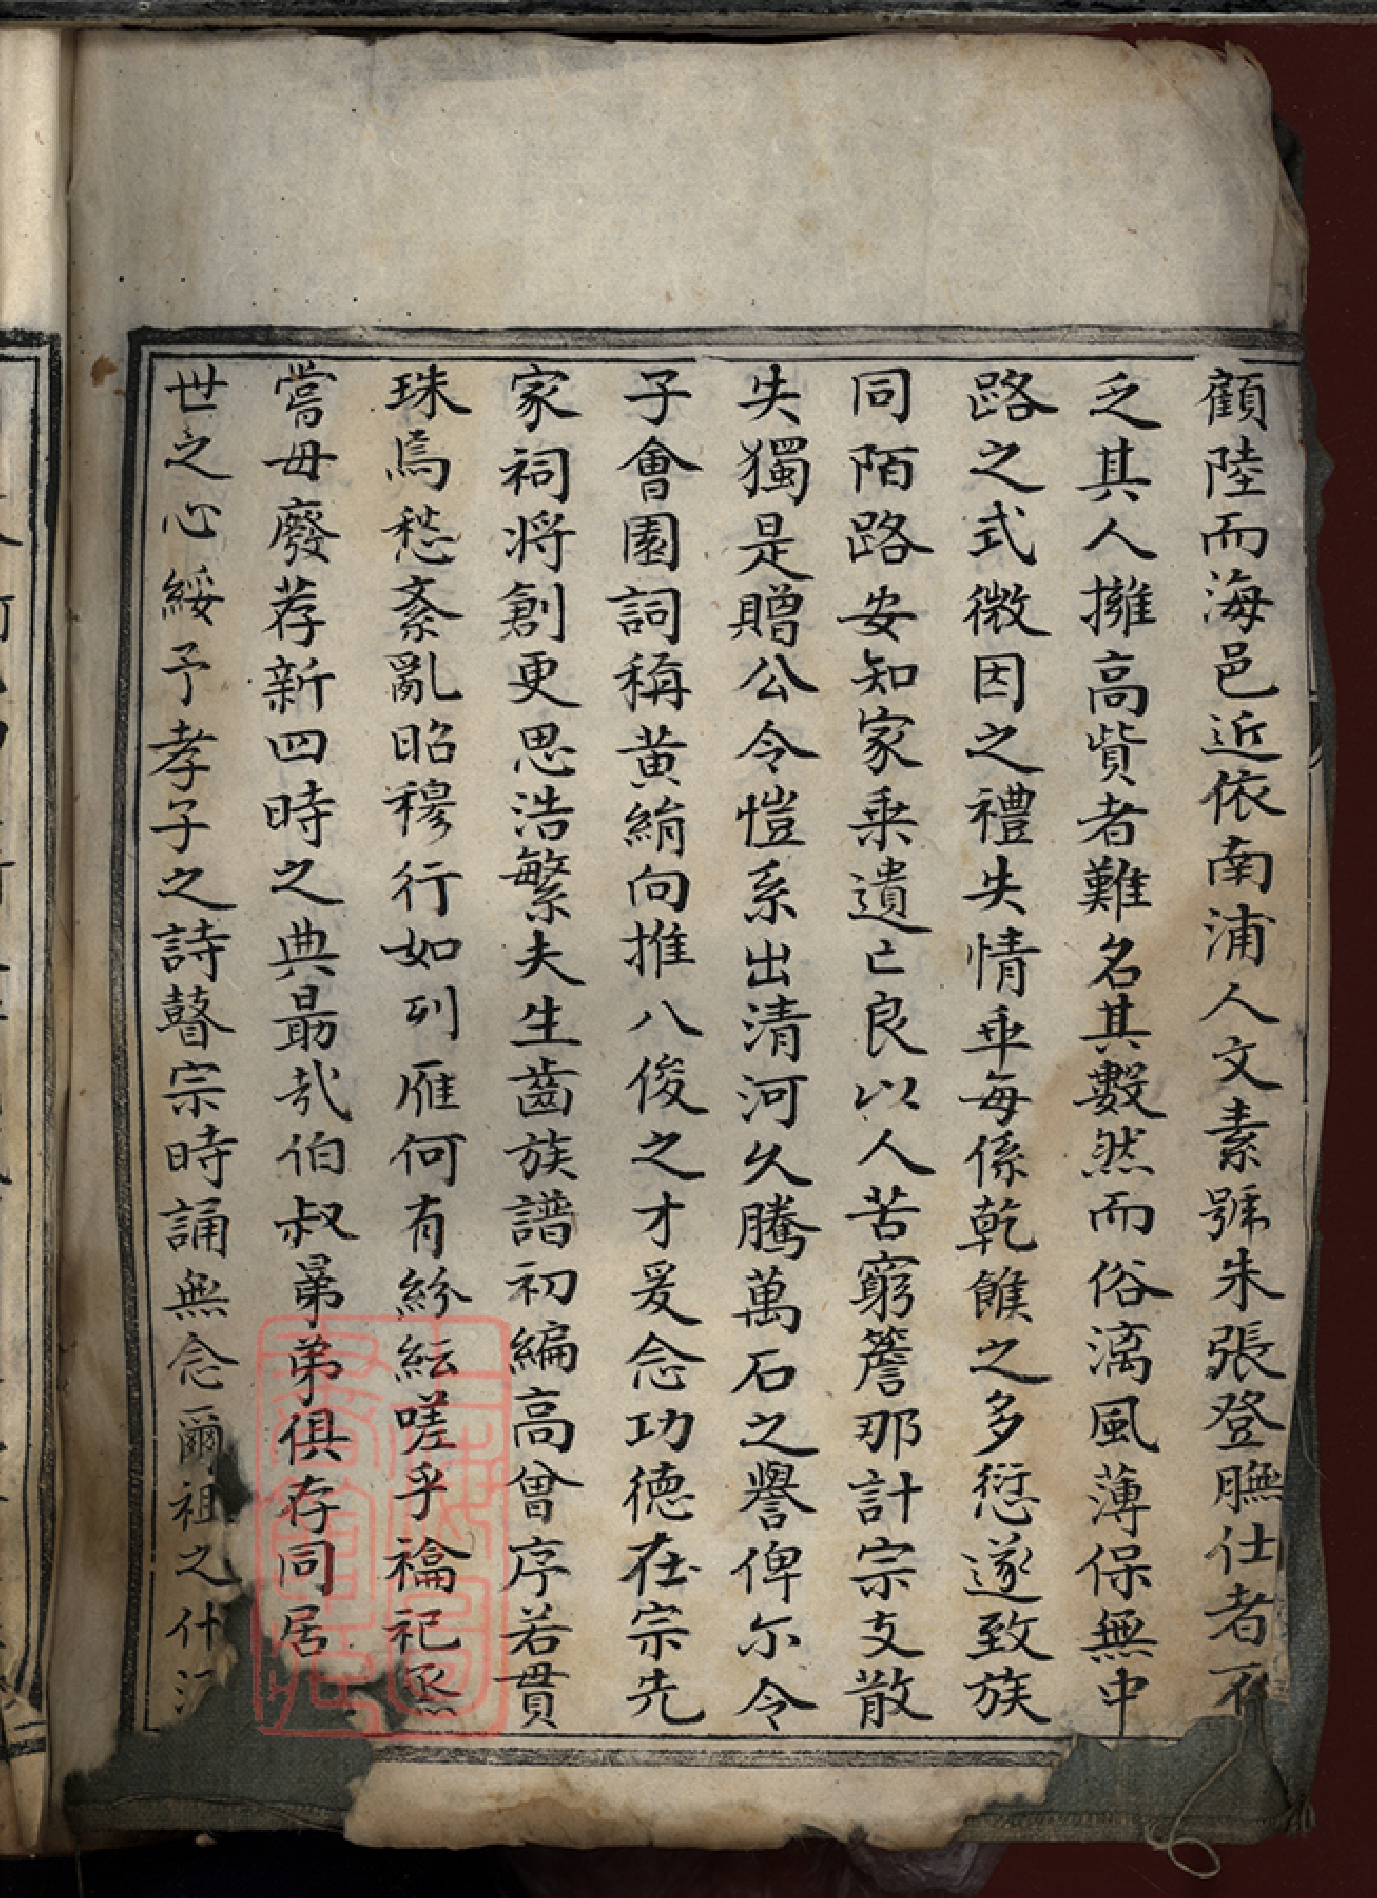 顧陸而海邑近依南浦人文素號朱張登膴仕者不
乏其人擁高貲者難名其數然而俗漓風薄保無中
路之式微因之禮失情乖每係乾餱之多愆遂致族
同陌路安知家乘遺亡良以人苦窮簷那計宗支散
失獨是贈公令愷系出清河久騰萬石之譽俾尓令
子會園詞稱黃絹向推八俊之才爰念功德在宗先
家祠将創更思浩繁夫生齒族譜初編高曾序若貫
珠焉愁紊亂昭穆行如列雁何有紛紜嗟乎禴祀烝
嘗毋廢荐新四時之典最㢤伯叔晜弟俱存同居
世之心綏予孝子之詩瞽宗時誦無念爾祖之什